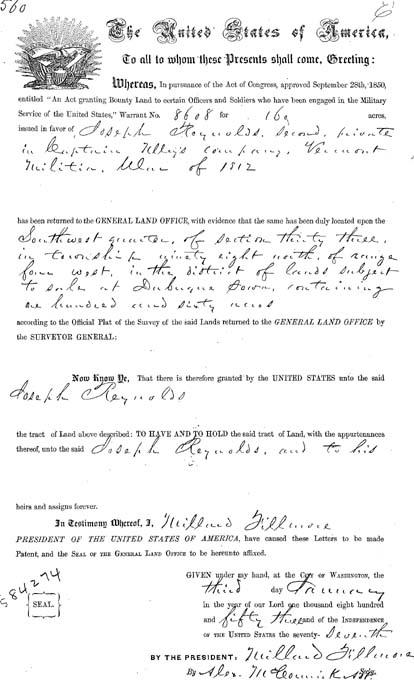 560
6
The United States of America,
To all to whom these Presents shall come, Greeting:
Whereas, In pursuance of the Act of Congress, approved September 28th, 1850,
entitled "An Act granting Bounty Land to certain Officers and Soldiers who have been engaged in the Military
Service of the United States," Warrant No. 8608 for 160 acres,
issued in favor of Joseph Reynolds, second, private
in Captain Company, Vermont
Militia, War of 1812
has been returned to the GENERAL LAND OFFICE, with evidence that the same has been duly located upon the
Southwest quarter, of section thirty three,
in township ninety eight north, of range
four west, in the district of lands subject
to sale at Dubuque Iowa, containing
one hundred and sixty acres
according to the Official Plat of the Survey of the said Lands returned to the GENERAL LAND OFFICE by
the SURVEYOR GENERAL:
Now Know Ye, That there is therefore granted by the UNITED STATES unto the said
Joseph Reynolds
the tract of Land above described: TO HAVE AND TO HOLD the said tract of Land, with the appurtenances
thereof, unto the said Joseph Reynolds, and to his
heirs and assigns forever.
In Testimony Whereof, I, Millard Fillmore
PRESIDENT OF THE UNITED STATES OF AMERICA, have caused these Letters to be made
Patent, and the SEAL OF THE GENERAL LAND OFFICE to be hereunto affixed.
584274
SEAL.
GIVEN under my hand, at the CITY OF WASHINGTON, the
third day January
in the year of our Lord one thousand eight hundred
and fifty three and of the INDEPENDENCE
OF THE UNITED STATES the seventy-seventh
BY THE PRESIDENT: Millard Fillmore
By Alex. McCormick